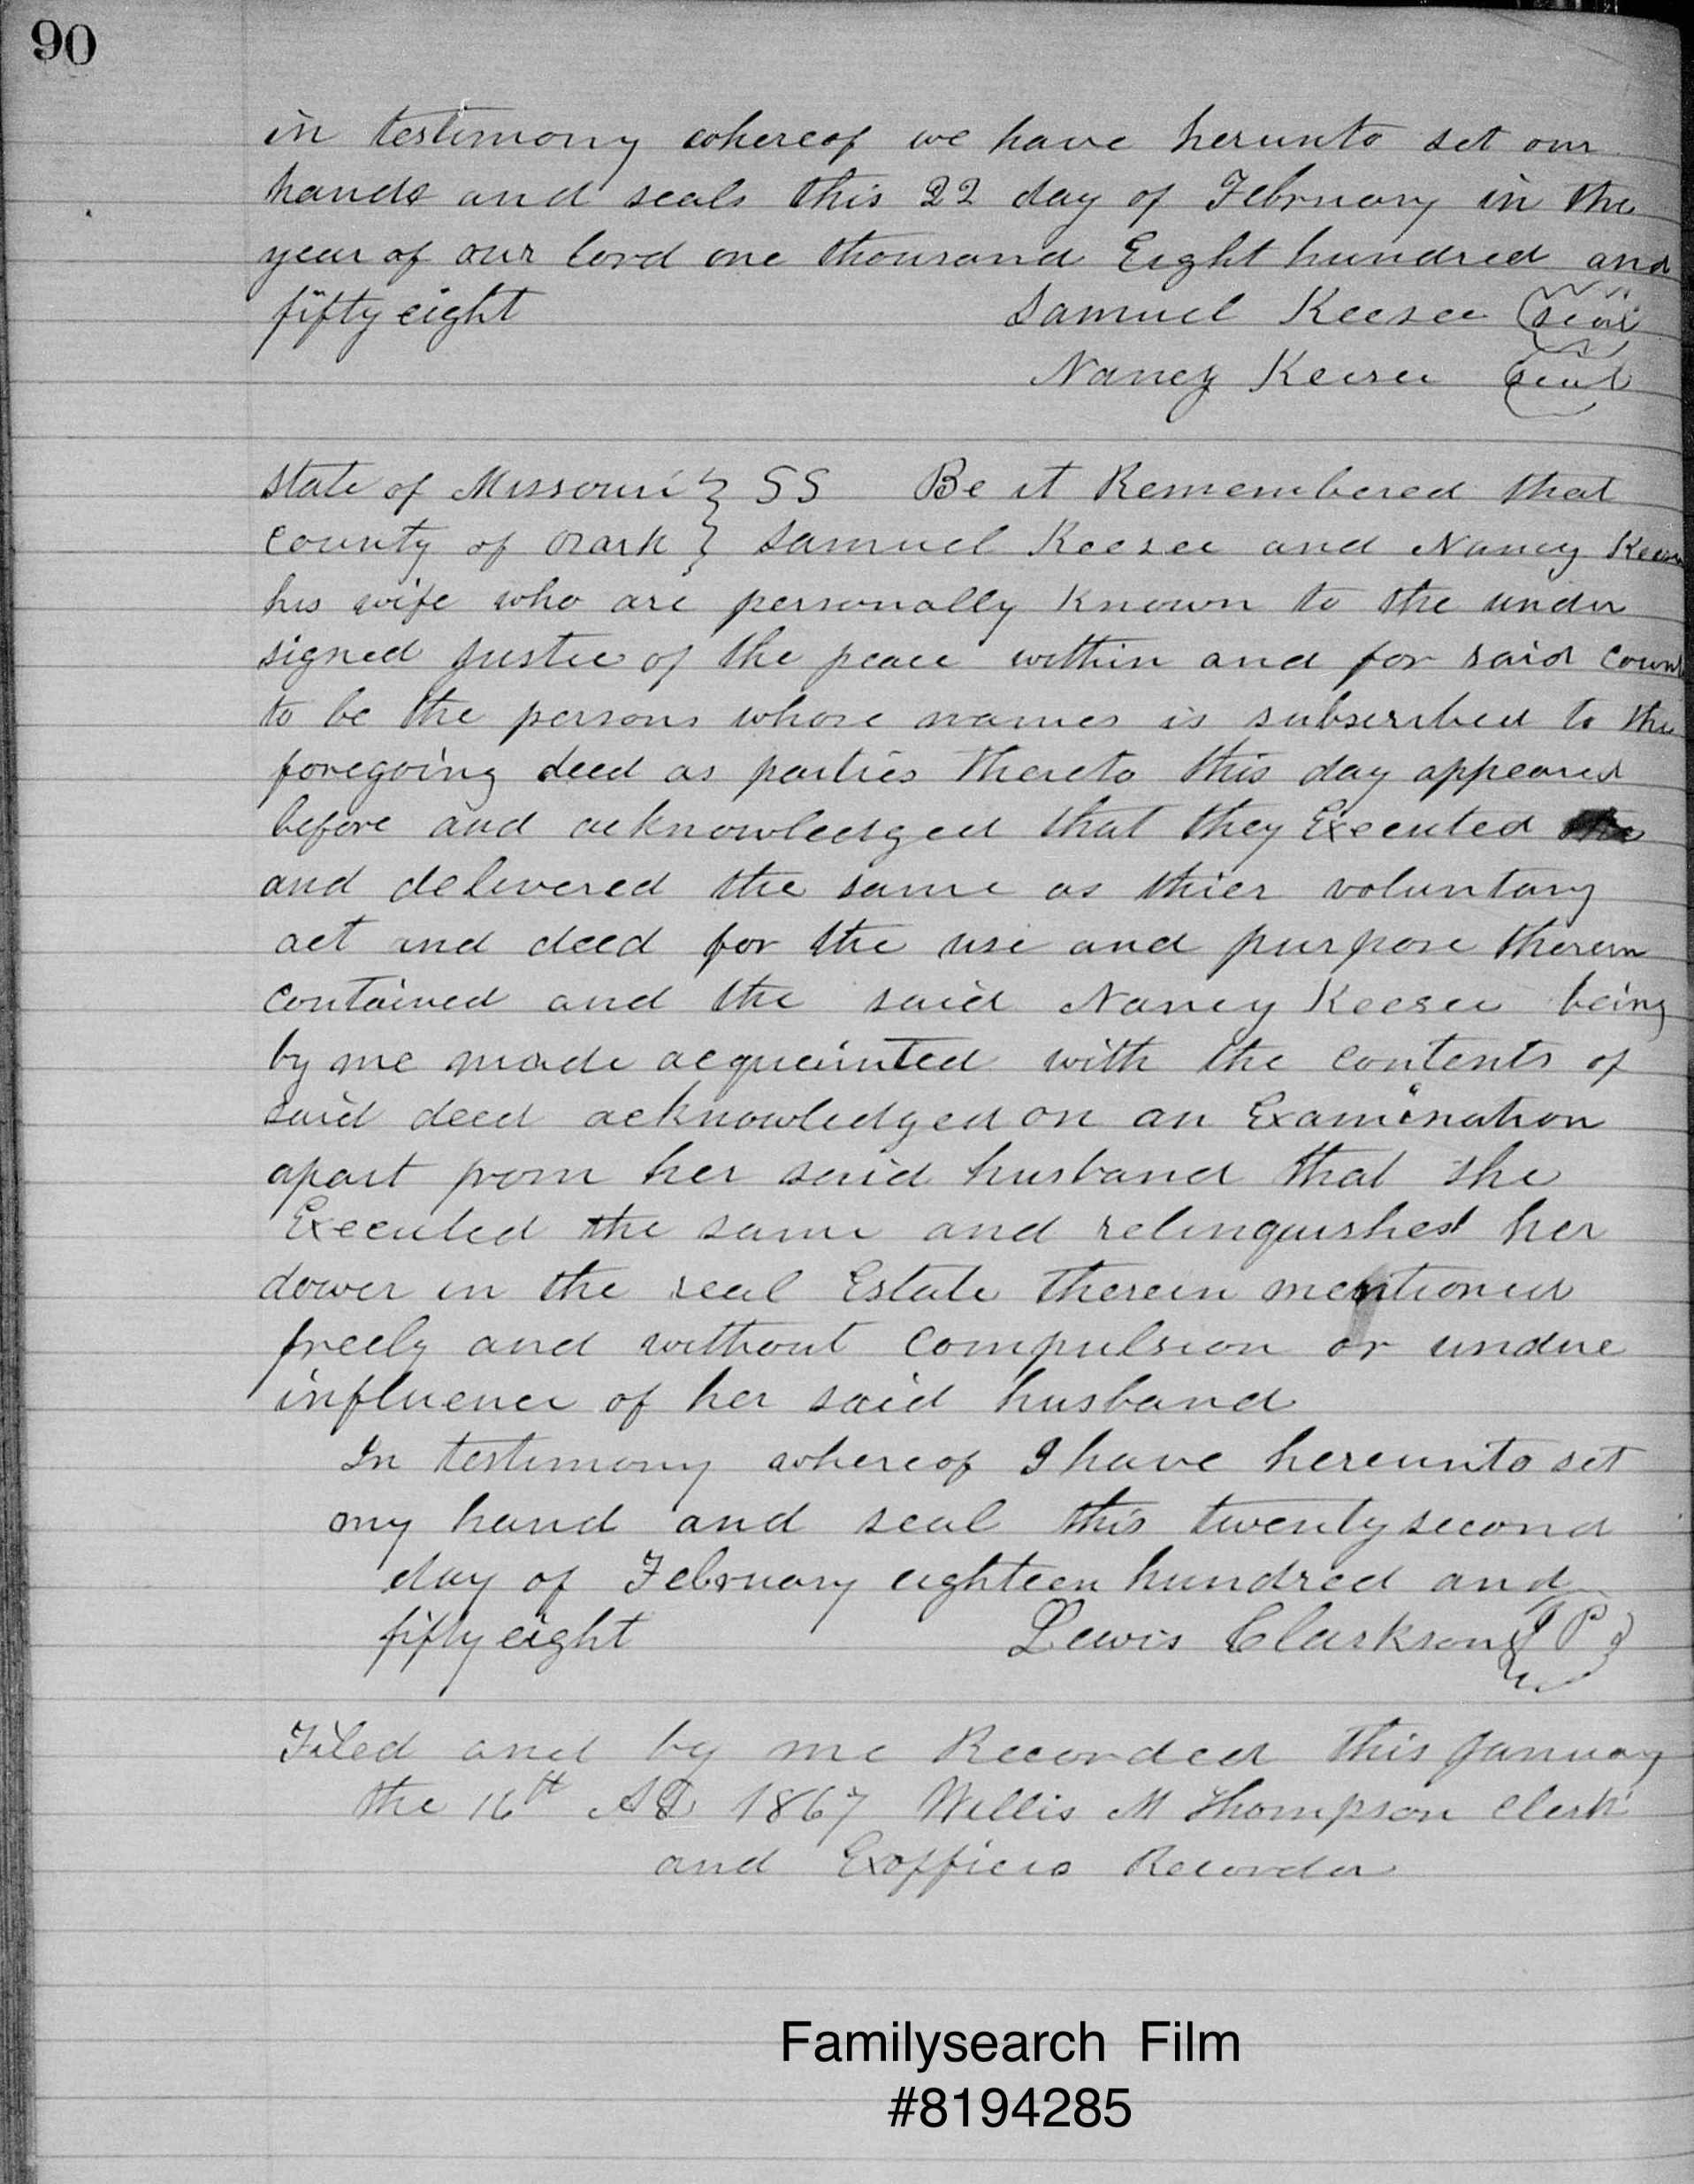 90
in testimony whereof we have herunto set our
hands and seals this 22 day of February in the
year of our lord one thousand Eight hundred and
fifty eight Samuel Keesee seal
Nancy Keesee seal
State of Missouri } SS Be it Remembered that
County of Ozark } Samuel Keesee and Nancy Keesee
his wife who are personally Known to the under
signed Justice of the peace within and for said Coun
to be the persons whose names is subscribed to the
foregoing deed as parties thereto this day appeared
before and acknowledged that they Executed
and delivered the same as thier voluntary
act and deed for the use and purpose therein
contained and the said Nancy Keesee being
by me made acquainted with the contents of
said deed acknowledged on an Examination
apart from her said husband that she
Executed the same and relinquished her
dower in the real Estate therein mentioned
freely and without compulsion or undue
influence of her said husband
In testimony whereof I have hereunto set
my hand and seal this twenty second
day of February eighteen hundred and
fifty eight Lewis Clarkson J P
Filed and by me Recorded this January
the 16th AD 1867 Willis M Thompson Clerk
and Exofficio Recorder
Familysearch Film
#8194285